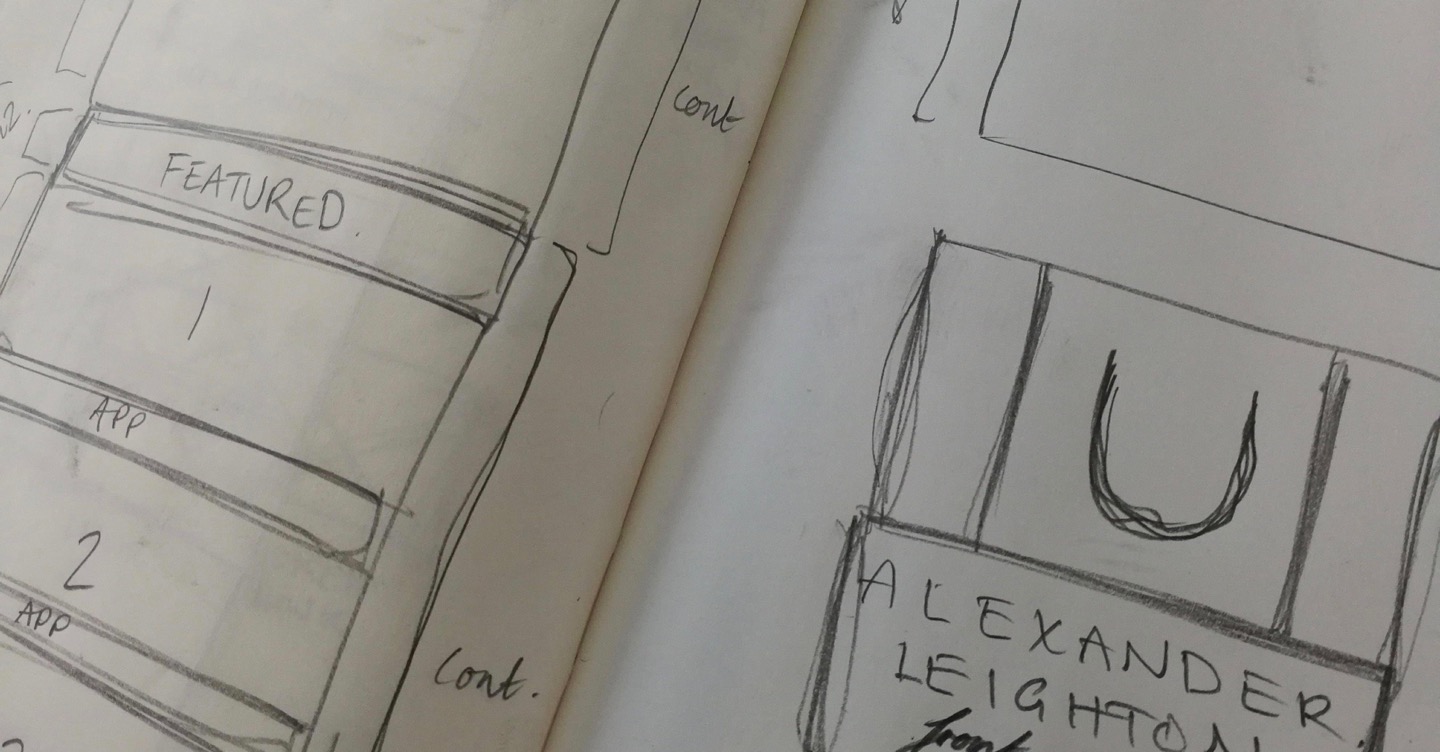 cont
FEATURED.
1
APP
2
APP
cont.
U
ALEXANDER
LEIGHTON
front